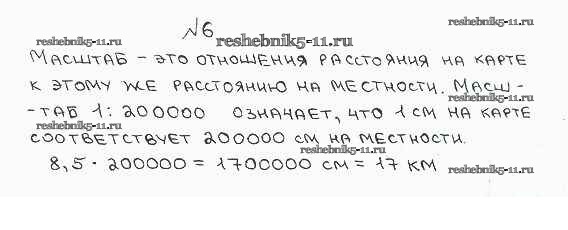 №6
reshebnik5-11.ru
reshebnik5-11.ru
reshebnik5-11.ru
Масштаб - это отношения расстояния на карте
к этому же расстоянию на местности. Масш-
reshebnik5-11.ru
-таб 1:200000 означает, что 1 см на карте
reshebnik5-11.ru
соответствует 200000 см на местности.
reshebnik5-11.ru
8,5 · 200000 = 1700000 см = 17 км
reshebnik5-11.ru